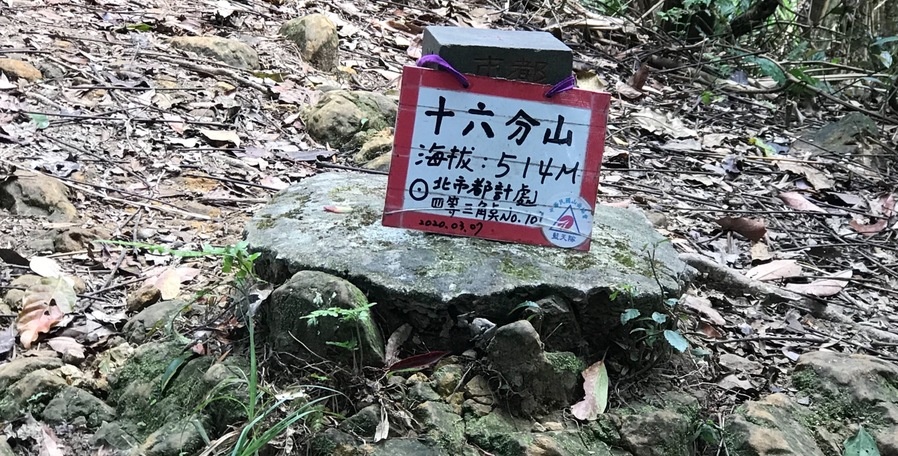 市都
十六分山
海拔：514M
⊙北市都計處
四等三角點NO.10
2020.03.07
藍天隊